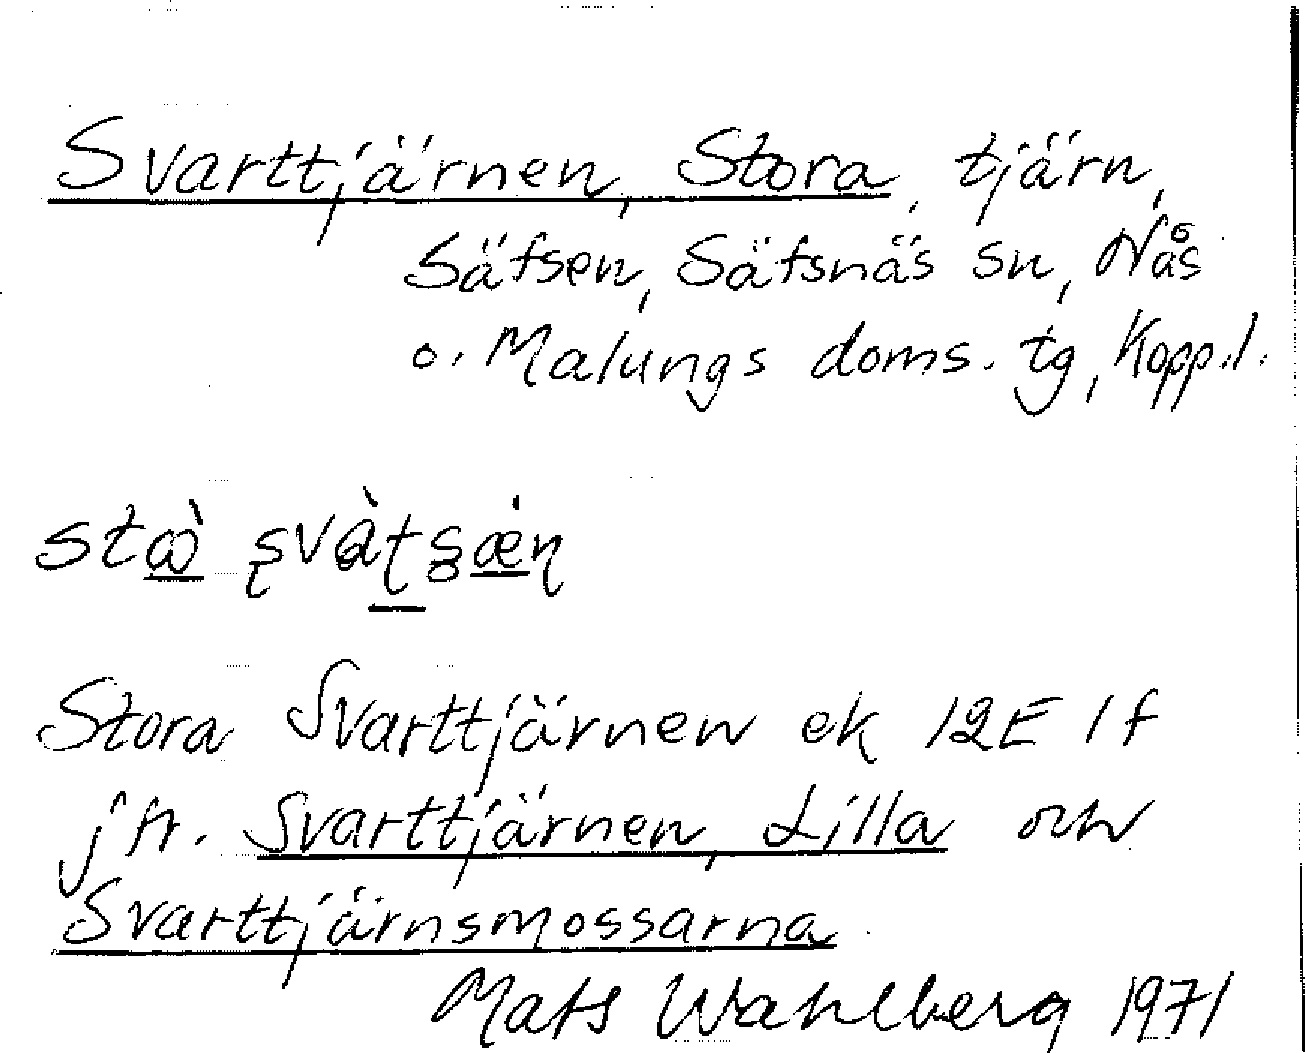 Svarttjärnen, Stora, tjärn,
Säfsen, Säfsnäs sn, Nås
o. Malungs doms. tg, Kopp.l.
Stora Svarttjärnen ek 12E 1f
jfr. Svarttjärnen, Lilla och
Svarttjärnsmossarna
Mats Wahlberg 1971